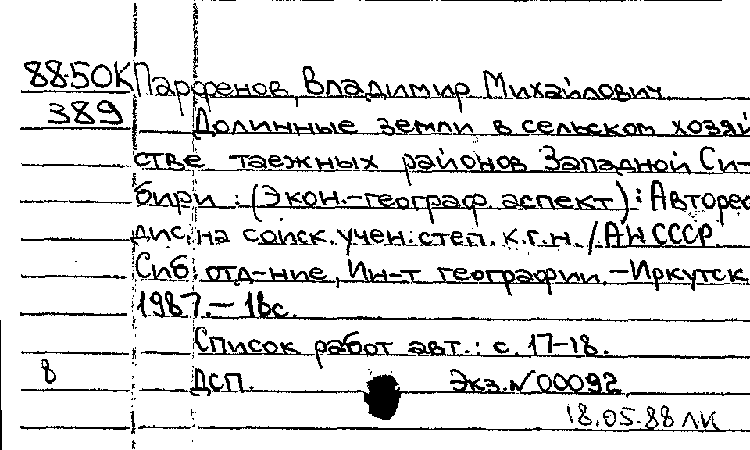 88-50К Парфенов, Владимир Михайлович
389 Долинные земли в сельском хозяй
стве таежных районов Западной Си-
бири : (Экон.-географ. аспект) : Авторео
дис. на соиск. учен. степ. к.г.н. / АН СССР.
Сиб. отд-ние, Ин-т географии. – Иркутск
1987. – 18с.
Список работ авт.: с. 17-18.
8 ДСП. Экз. N 00092
18.05.88 ЛК